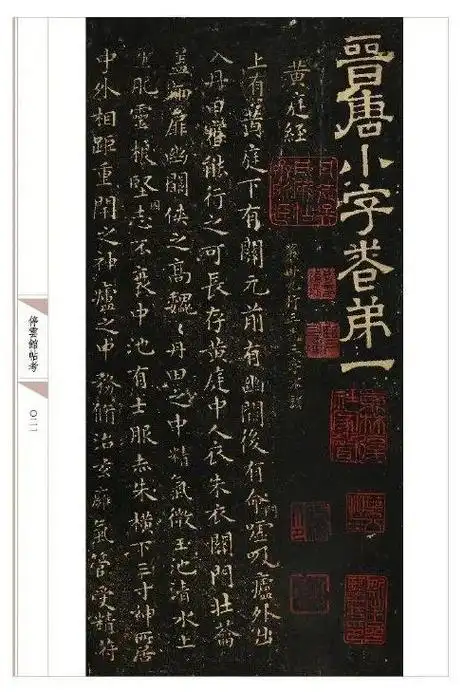 晉唐小字卷弟一
黄庭經
上有黄庭下有關元前有幽闕後有命門噓吸廬外出
入丹田審能行之可長存黄庭中人衣朱衣關門壯籥
蓋兩扉幽闕俠之高魏〻丹田之中精氣微玉池清水上
生肥靈根堅志不衰中池有士服赤朱橫下三寸神所居
中外相距重閉之神廬之中務脩治玄廱氣管受精符
停雲館帖考